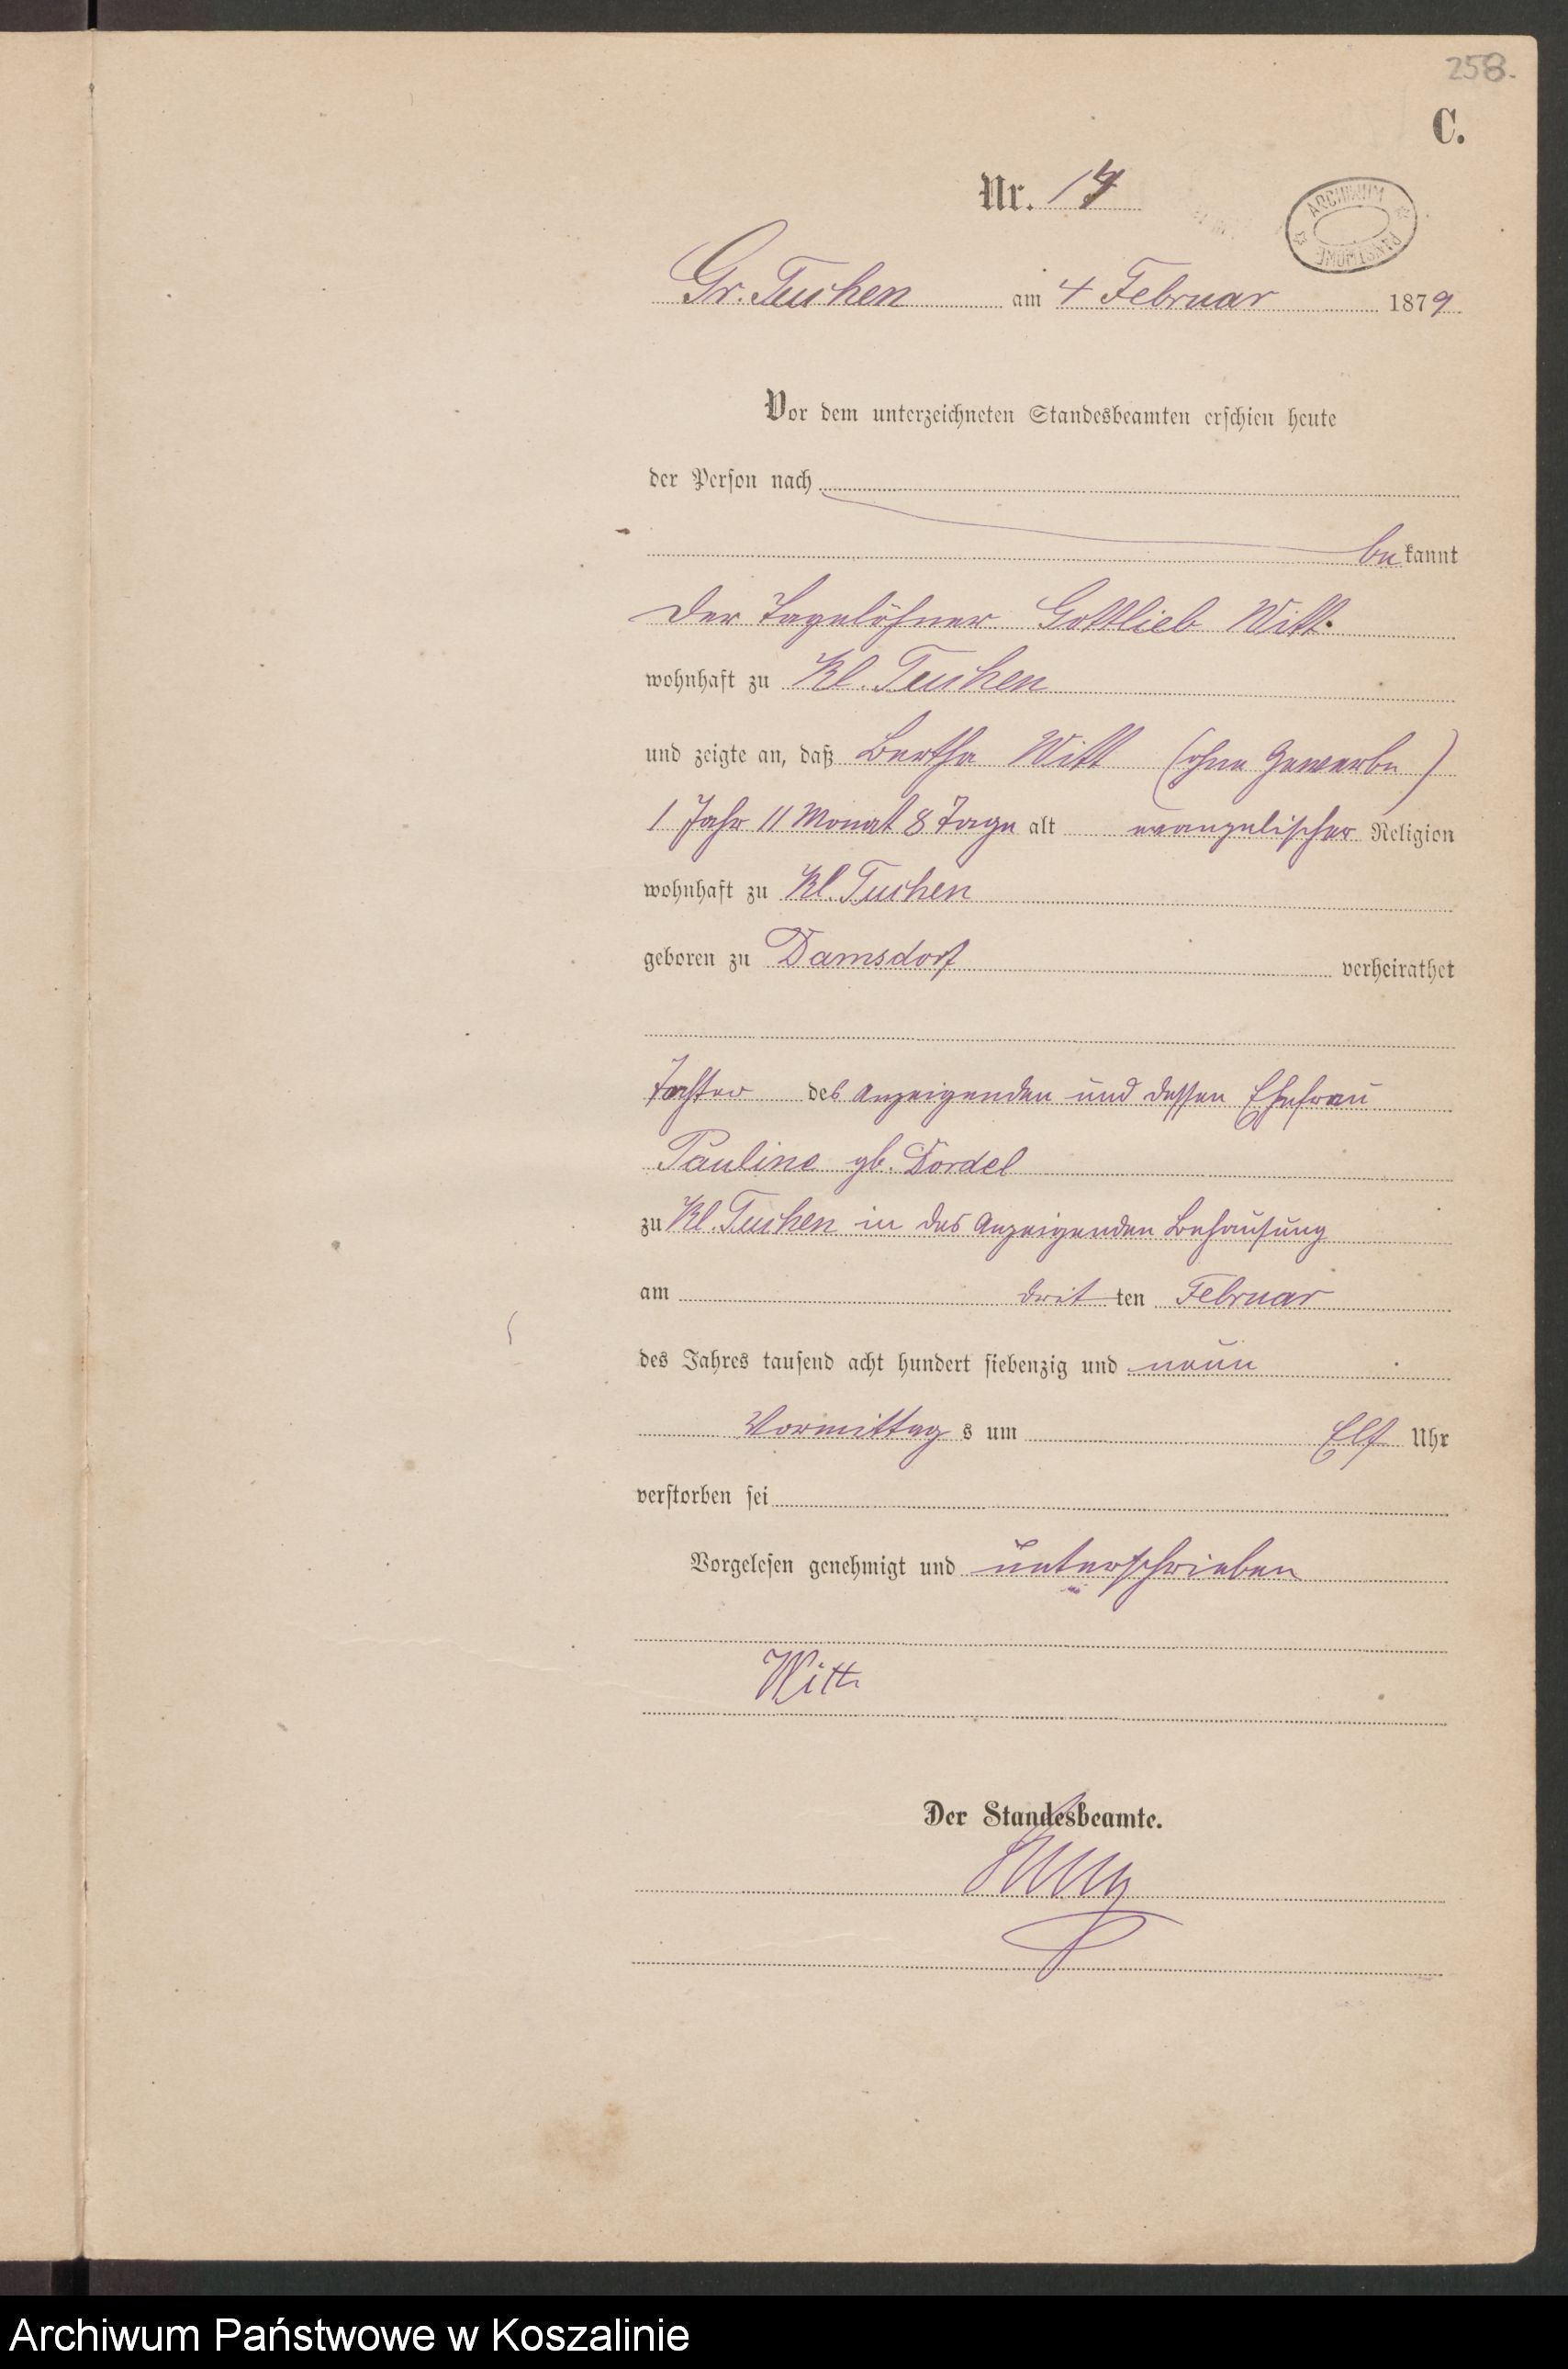 258.
C.
Nr. 17
ARCHIWUM PAŃSTWOWE
Gr. Tuchen am 4 Februar 1879
Vor dem unterzeichneten Standesbeamten erschien heute
der Person nach
bekannt
der Tagelöhner Gottlieb Witt
wohnhaft zu Kl. Tuchen
und zeigte an, daß Bertha Witt (ohne Gewerbe)
1 Jahr 11 Monat 8 Tage alt evangelischer Religion
wohnhaft zu Kl. Tuchen
geboren zu Damsdorf verheirathet
Tochter des Anzeigenden und dessen Ehefrau
Pauline gb. Dordel
zu Kl. Tuchen in des Anzeigenden Behausung
am dritten Februar
des Jahres tausend acht hundert siebenzig und neun
Vormittags um Elf Uhr
verstorben sei
Vorgelesen genehmigt und unterschrieben
Witt
Der Standesbeamte.
Archiwum Państwowe w Koszalinie